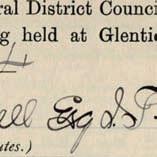 ral District Counci
ng held at Glentie
ell Esq J. P
utes.)